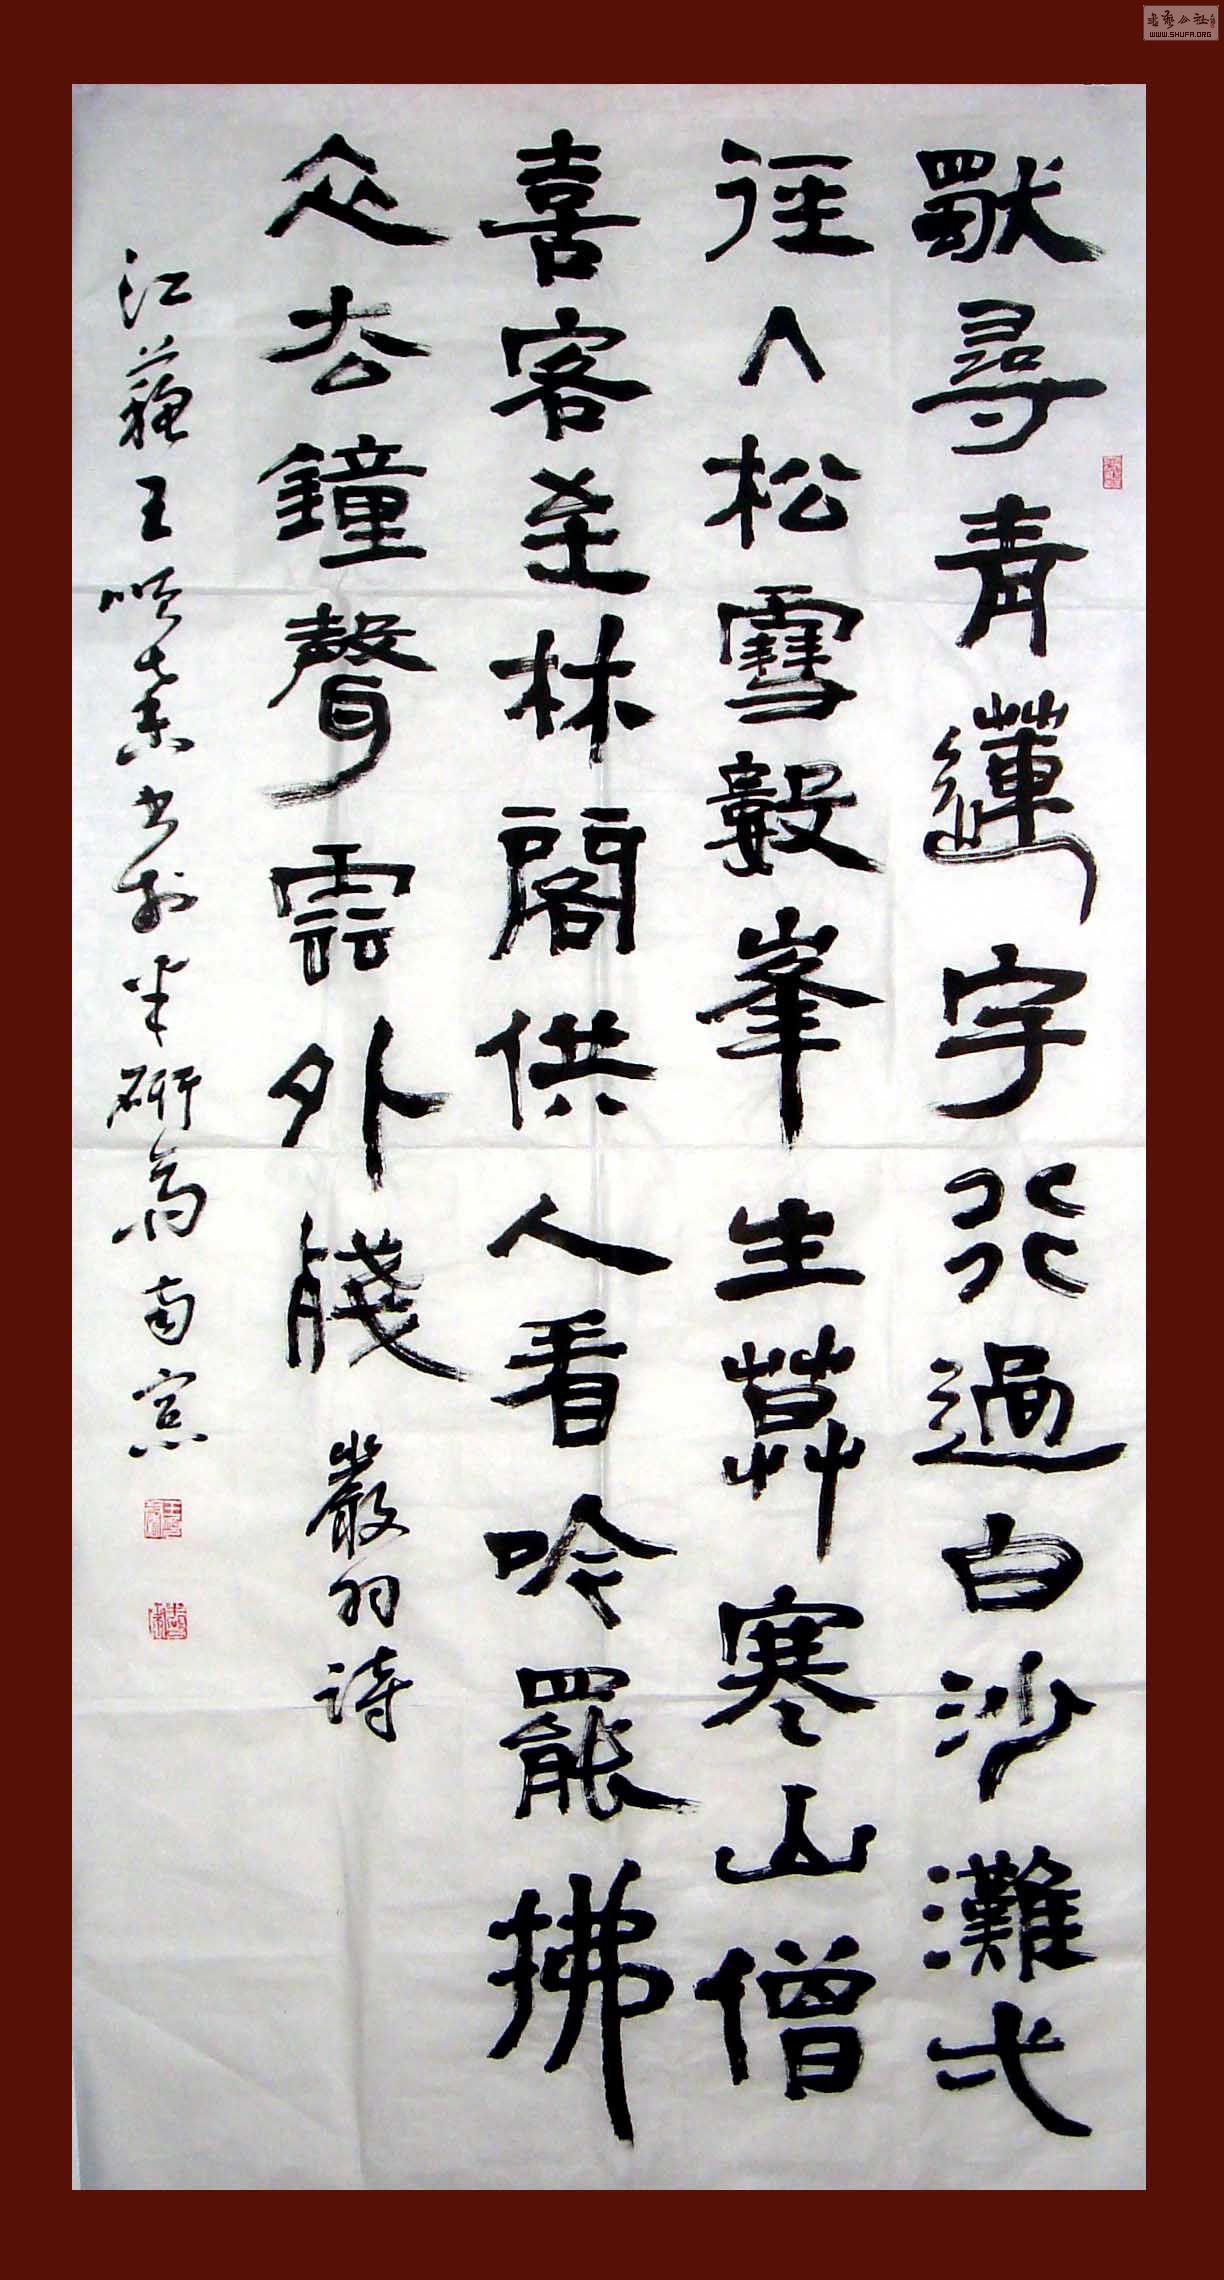 書藝公社
WWW.SHUFA.ORG
獨尋青蓮宇行過白沙灘弌
徑入松雪數峯生暮寒山僧
喜客至林閣供人看吟罷拂
衣去鐘聲雲外殘 嚴羽詩
江蘇王書於半研齋南窓